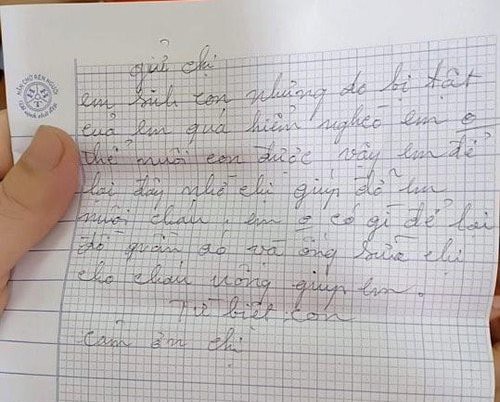 NÉT CHỮ RÈN NGƯỜI
gửi chị
em sinh con nhưng do bị tật
của em quá hiểm nghèo em o
thể nuôi con được vậy em để
lại đây nhờ chị giúp đỡ em
nuôi cháu. em o có gì để lại
đồ quần áo và ống sữa chị
cho cháu uống giúp em.
Từ biệt con
cảm ơn chị